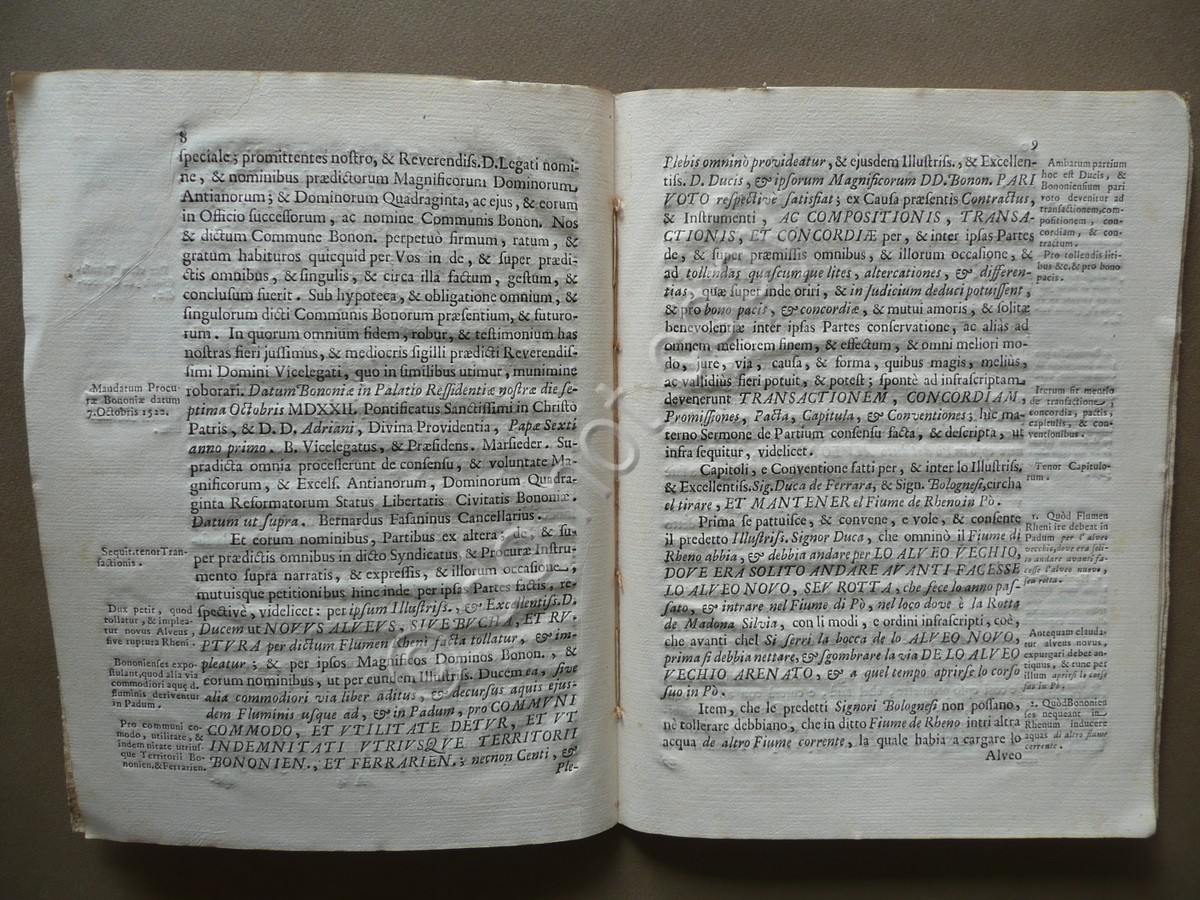 8
speciale; promittentes nostro, & Reverendiss. D. Legati nomi-
ne, & nominibus prædictorum Magnificorum Dominorum
Antianorum; & Dominorum Quadraginta, ac ejus, & eorum
in Officio successorum, ac nomine Communis Bonon. Nos
& dictum Commune Bonon. perpetuò firmum, ratum, &
gratum habituros quicquid per Vos in de, & super prædi-
ctis omnibus, & singulis, & circa illa factum, gestum, &
conclusum fuerit. Sub hypoteca, & obligatione omnium, &
singulorum dicti Communis Bonorum præsentium, & futuro-
rum. In quorum omnium fidem, robur, & testimonium has
nostras fieri jussimus, & mediocris sigilli prædicti Reverendis-
simi Domini Vicelegati, quo in similibus utimur, munimine
roborari. Datum Bononiæ in Palatio Ressidentiæ nostræ die se-
ptima Octobris MDXXII. Pontificatus Sanctissimi in Christo
Patris, & D. D. Adriani, Divina Providentia, Papæ Sexti
anno primo. B. Vicelegatus, & Præsidens. Marsieder. Su-
pradicta omnia processerunt de consensu, & voluntate Ma-
gnificorum, & Excels. Antianorum, Dominorum Quadra-
ginta Reformatorum Status Libertatis Civitatis Bononiæ.
Datum ut supra. Bernardus Fasaninus Cancellarius.
Et eorum nominibus, Partibus ex altera; de, & su-
per prædictis omnibus in dicto Syndicatus & Procuræ Instru-
mento supra narratis, & expressis, & illorum occasione,
mutuisque petitionibus hinc inde per ipsas Partes factis, re-
spectivè, videlicet: per ipsum Illustriss., & Excellentiss. D.
Ducem ut NOVVS ALVEVS, SIVE BVCHA, ET RV-
PTVRA per dictum Flumen Rheni facta tollatur, & im-
pleatur; & per ipsos Magnificos Dominos Bonon., &
eorum nominibus, ut per eundem Illustriss. Ducem ea, sive
alia commodiori via liber aditus, & decursus aquis ejus-
dem Fluminis usque ad, & in Padum, pro COMMVNI
COMMODO, ET VTILITATE DETVR, ET VT
INDEMNITATI VTRIVSQVE TERRITORII
BONONIEN., ET FERRARIEN.; necnon Centi, &
Ple-
Mandatum Procu-
ræ Bononiæ datum
7. Octobris 1522.
Sequit. tenor Tran-
sactionis.
Dux petit, quod
tollatur, & implea-
tur novus Alveus,
sive ruptura Rheni.
Bononienses expo-
stulant, quod alia via
commodiori aquæ d.
fluminis deriventur
in Padum.
Pro communi co-
modo, utilitate, &
indemnitate utrius-
que Territorii Bo-
nonien, & Ferrarien.
9
Plebis omninò provideatur, & ejusdem Illustriss., & Excellen-
tiss. D. Ducis, & ipsorum Magnificorum DD. Bonon. PARI
VOTO respectivè satisfiat; ex Causa præsentis Contractus,
& Instrumenti, AC COMPOSITIONIS, TRANSA-
CTIONIS, ET CONCORDIÆ per, & inter ipsas Partes
de, & super præmissis omnibus, & illorum occasione, &
ad tollendas quascumque lites, altercationes, & differen-
tias, quæ super inde oriri, & in Judicium deduci potuissent,
& pro bono pacis, & concordiæ, & mutui amoris, & solitæ
benevolentiæ inter ipsas Partes conservatione, ac aliàs ad
omnem meliorem finem, & effectum, & omni meliori mo-
do, jure, via, causa, & forma, quibus magis, melius,
ac vallidiùs fieri potuit, & potest; spontè ad infrascriptam
devenerunt TRANSACTIONEM, CONCORDIAM,
Promissiones, Pacta, Capitula, & Conventiones; hic ma-
terno Sermone de Partium consensu facta, & descripta, ut
infra sequitur, videlicet.
Capitoli, e Conventione fatti per, & inter lo Illustriss.
& Excellentiss. Sig. Duca de Ferrara, & Sign. Bolognesi, circha
el tirare, ET MANTENER el Fiume de Rheno in Pò.
Prima se pattuisce, & convene, e vole, & consente
il predetto Illustriss. Signor Duca, che omninò il Fiume di
Rheno abbia, & debbia andare per LO ALVEO VECHIO,
DOVE ERA SOLITO ANDARE AVANTI FACESSE
LO ALVEO NOVO, SEV ROTTA, che fece lo anno pas-
sato, & intrare nel Fiume di Pò, nel loco dove è la Rotta
de Madona Silvia, con li modi, e ordini infrascripti, coè,
che avanti chel Si serri la bocca de lo ALVEO NOVO,
prima si debbia nettare, & sgombrare la via DE LO ALVEO
VECHIO ARENATO, & a quel tempo aprirse lo corso
suo in Pò.
Item, che le predetti Signori Bolognesi non possano,
nè tollerare debbiano, che in ditto Fiume de Rheno intri altra
acqua de altro Fiume corrente, la quale habia a cargare lo
Alveo
Ambarum partium
hoc est Ducis, &
Bononiensium pari
voto devenitur ad
transactionem, com-
positionem, con-
cordiam, & con-
tractum.
Pro tollendis liti-
bus &c. & pro bono
pacis.
Iterum fit mentio
de transactione,
concordia, pactis,
capitulis, & con-
ventionibus.
Tenor Capitulo-
rum.
1. Quòd Flumen
Rheni ire debeat in
Padum per l'alveo
vecchio, dove era soli-
to andare avanti fa-
cesse l'alveo nuovo,
sea rotta.
Antequam clauda-
tur alveus novus,
expurgari debet an-
tiquus, & tunc per
illum aprirsi lo corso
suo in Pò.
2. Quòd Bononien
ses nequeant in
Rhenum inducere
aquas di altro fiume
corrente.